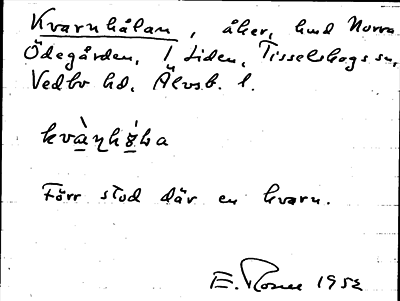 Kvarnhålan, åker, hmd Norra
Ödegården, 1 Liden, Tisselskogs sn,
Vedbo hd, Älvsb. l.
Förr stod där en kvarn.
E. Rosen 1952